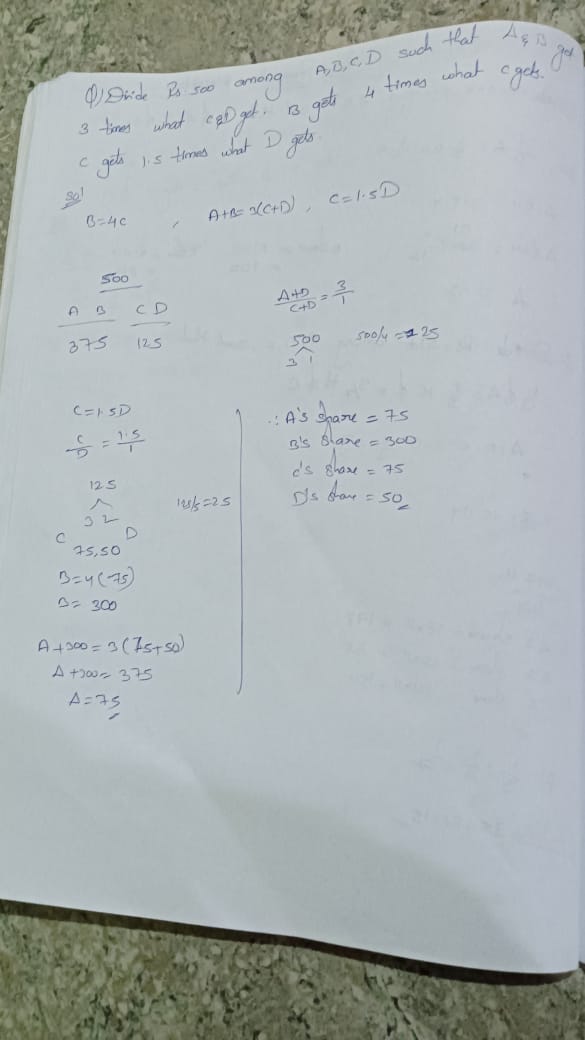 Q) Divide Rs 500 among A, B, C, D such that A & B get
3 times what C & D get. B gets 4 times what C gets.
C gets 1.5 times what D gets.
sol
B=4C , A+B=3(C+D) , C=1.5D
500
A B C D
375 125
A+D/C+D = 3/1
500 500/4 = 125
3 1
C=1.5D
C/D = 1.5/1
125
3 2 125/5=25
C D
75,50
B=4(75)
B= 300
A+300= 3(75+50)
A+300= 375
A=75
∴ A's share = 75
B's share = 300
C's share = 75
D's share = 50